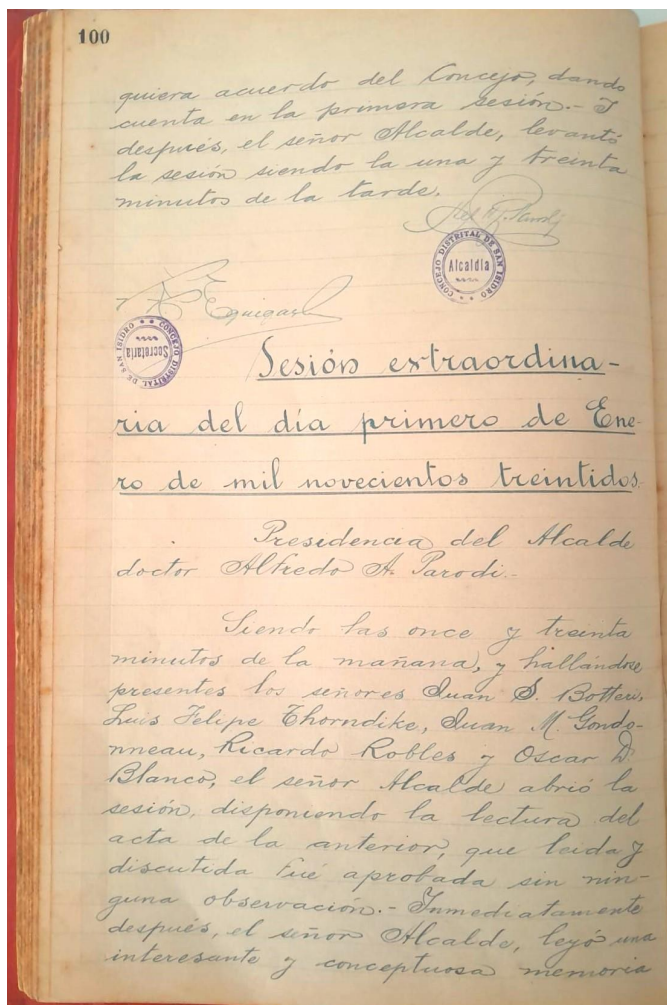 100
quiera acuerdo del Concejo, dando
cuenta en la primera sesión.- I
después, el señor Alcalde, levantó
la sesión siendo la una y treinta
minutos de la tarde.
CONCEJO DISTRITAL DE SAN ISIDRO
Alcaldía
CONCEJO DISTRITAL DE SAN ISIDRO
Secretaría
Sesión extraordina-
ria del día primero de Ene-
ro de mil novecientos treintidos.
Presidencia del Alcalde
doctor Alfredo A. Parodi.-
Siendo las once y treinta
minutos de la mañana, y hallándose
presentes los señores Juan S. Botteri,
Luis Felipe Thorndike, Juan M. Gondo-
nneau, Ricardo Robles y Oscar D.
Blanco, el señor Alcalde abrió la
sesión, disponiendo la lectura del
acta de la anterior, que leida y
discutida fué aprobada sin nin-
guna observación.- Inmediatamente
después, el señor Alcalde, leyó una
interesante y conceptuosa memoria